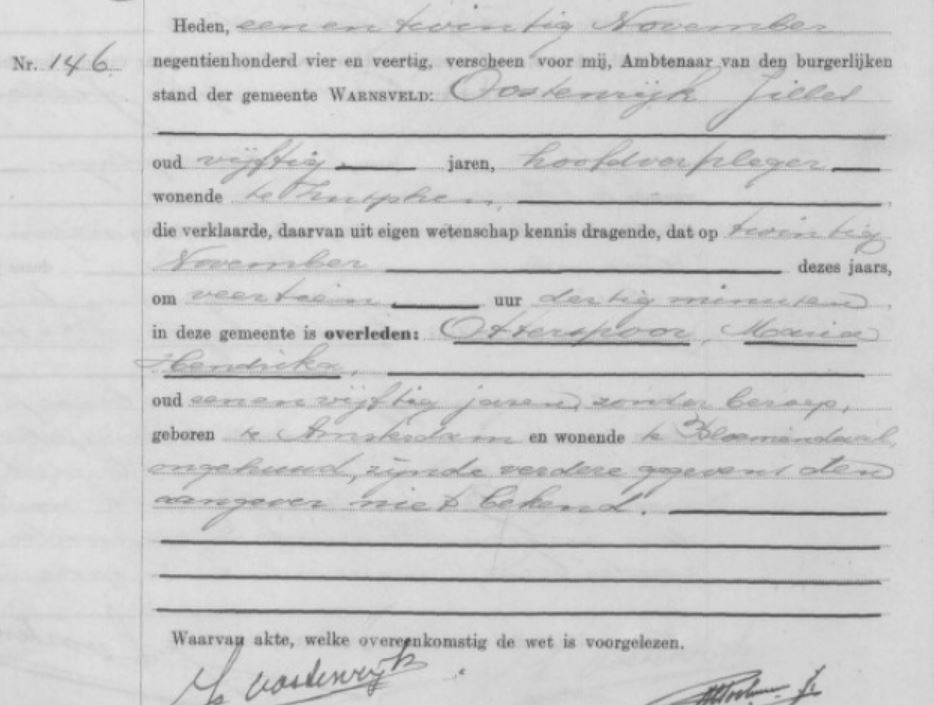 Heden, een en twintig November
Nr. 146. negentienhonderd vier en veertig, verscheen voor mij, Ambtenaar van den burgerlijken
stand der gemeente WARNSVELD: Oostenrijk Jilles
oud vijftig jaren, hoofdverpleger
wonende te Zutphen,
die verklaarde, daarvan uit eigen wetenschap kennis dragende, dat op twintig
November dezes jaars,
om veertien uur dertig minuten,
in deze gemeente is overleden: Otterspoor, Maria
Hendrika,
oud een en vijftig jaren, zonder beroep,
geboren te Amsterdam en wonende te Bloemendaal,
ongehuwd, zijnde verdere gegevens den
aangever niet bekend.
Waarvan akte, welke overeenkomstig de wet is voorgelezen.
Oostenrijk